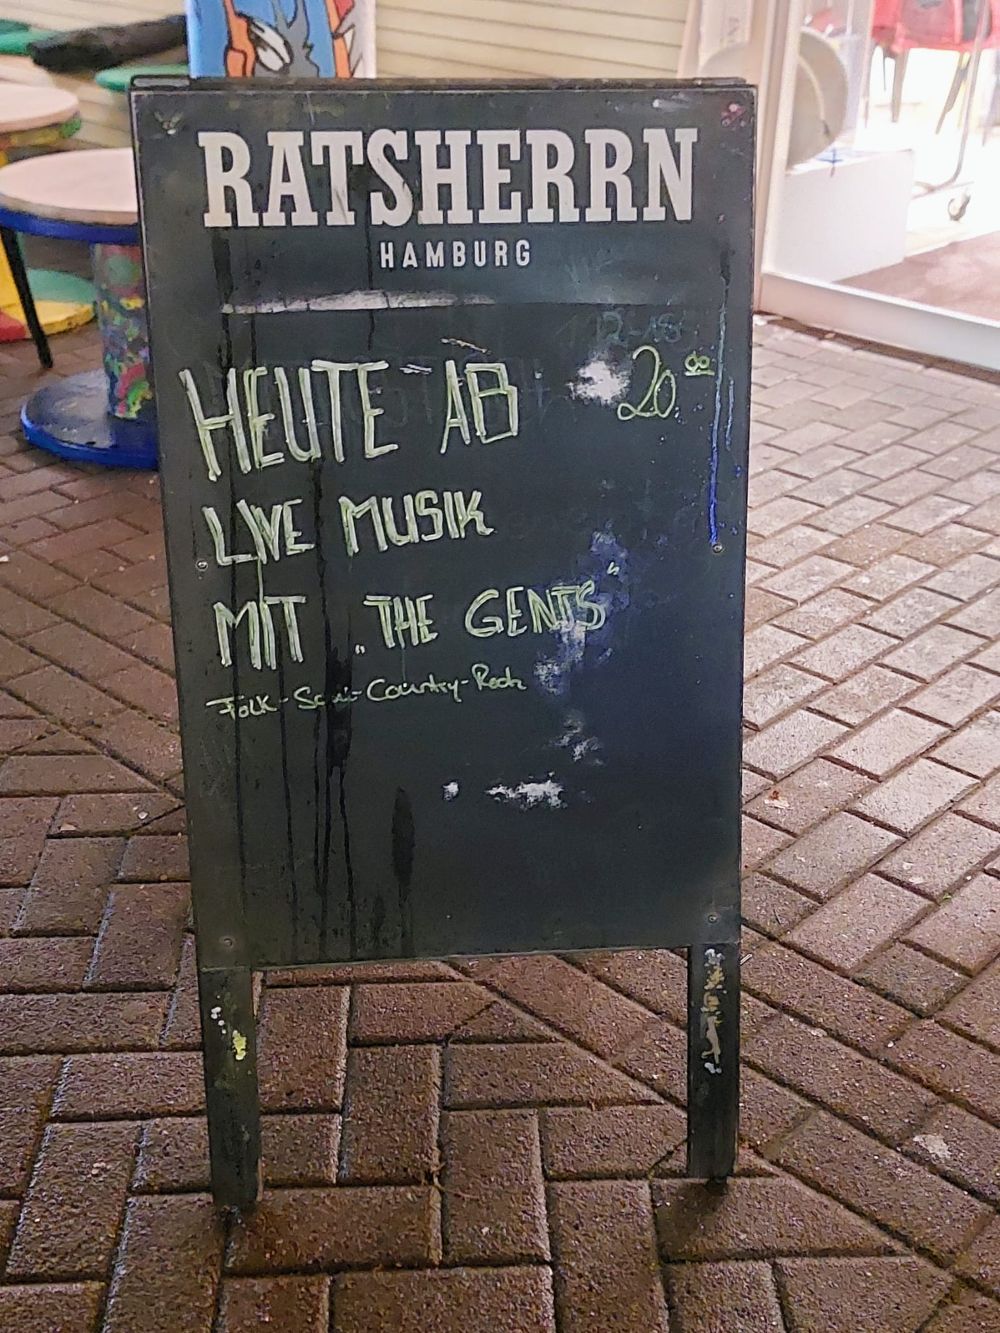 RATSHERRN
HAMBURG
HEUTE AB 20⁰⁰
LIVE MUSIK
MIT „THE GENTS“
FOLK- -Country-Rock